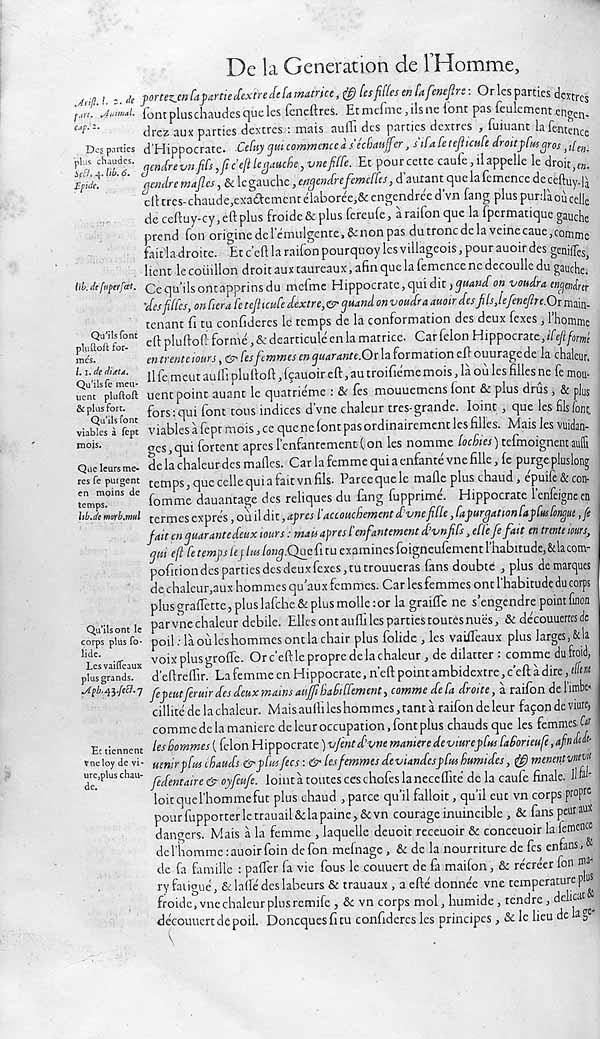 De la Generation de l'Homme,
portez en ſa partie dextre de la matrice, & les filles en ſa ſeneſtre: Or les parties dextres
ſont plus chaudes que les ſeneſtres. Et meſme, ils ne ſont pas ſeulement engen-
drez aux parties dextres: mais auſſi des parties dextres, ſuiuant la ſentence
d'Hippocrate. Celuy qui commence à s'échauffer, s'il a le teſticule droit plus gros, il en-
gendre vn fils, ſi c'eſt le gauche, vne fille. Et pour cette cauſe, il appelle le droit, en-
gendre maſles, & le gauche, engendre femelles, d'autant que la ſemence de ceſtuy-là
eſt tres-chaude, exactement élaborée, & engendrée d'vn ſang plus pur: là où celle
de ceſtuy-cy, eſt plus froide & plus ſereuſe, à raiſon que la ſpermatique gauche
prend ſon origine de l'émulgente, & non pas du tronc de la veine caue, comme
fait la droite. Et c'eſt la raiſon pourquoy les villageois, pour auoir des geniſſes,
lient le coüillon droit aux taureaux, afin que la ſemence ne decoulle du gauche.
Ce qu'ils ont apprins du meſme Hippocrate, qui dit, quand on voudra engendrer
des filles, on liera le teſticule dextre, & quand on voudra auoir des fils, le ſeneſtre. Or main-
tenant ſi tu conſideres le temps de la conformation des deux ſexes, l'homme
eſt pluſtoſt formé, & dearticulé en la matrice. Car ſelon Hippocrate, il eſt formé
en trente iours, & les femmes en quarante. Or la formation eſt ouurage de la chaleur.
Il ſe meut auſſi pluſtoſt, ſçauoir eſt, au troiſiéme mois, là où les filles ne ſe mou-
uent point auant le quatriéme: & ſes mouuemens ſont & plus drûs, & plus
fors: qui ſont tous indices d'vne chaleur tres-grande. Ioint, que les fils ſont
viables à ſept mois, ce que ne ſont pas ordinairement les filles. Mais les vuidan-
ges, qui ſortent apres l'enfantement (on les nomme lochies) teſmoignent auſſi
de la chaleur des maſles. Car la femme qui a enfanté vne fille, ſe purge plus long
temps, que celle qui a fait vn fils. Parce que le maſle plus chaud, épuiſe & con-
ſomme dauantage des reliques du ſang ſupprimé. Hippocrate l'enſeigne en
termes exprés, où il dit, apres l'accouchement d'vne fille, la purgation la plus longue, ſe
fait en quarante deux iours: mais apres l'enfantement d'vn fils, elle ſe fait en trente iours,
qui eſt le temps le plus long. Que ſi tu examines ſoigneuſement l'habitude, & la com-
poſition des parties des deux ſexes, tu trouueras ſans doubte, plus de marques
de chaleur, aux hommes qu'aux femmes. Car les femmes ont l'habitude du corps
plus graſſette, plus laſche & plus molle: or la graiſſe ne s'engendre point ſinon
par vne chaleur debile. Elles ont auſſi les parties toutes nuës, & découuertes de
poil: là où les hommes ont la chair plus ſolide, les vaiſſeaux plus larges, & la
voix plus groſſe. Or c'eſt le propre de la chaleur, de dilatter: comme du froid,
d'eſtreſſir. La femme en Hippocrate, n'eſt point ambidextre, c'eſt à dire, elle ne
ſe peut ſeruir des deux mains auſſi habillement, comme de la droite, à raiſon de l'imbe-
cillité de la chaleur. Mais auſſi les hommes, tant à raiſon de leur façon de viure,
comme de la maniere de leur occupation, ſont plus chauds que les femmes. Car
les hommes (ſelon Hippocrate) vſent d'vne maniere de viure plus laborieuſe, afin de de-
uenir plus chauds & plus ſecs: & les femmes de viandes plus humides, & menent vne vie
ſedentaire & oyſeuſe. Ioint à toutes ces choſes la neceſſité de la cauſe finale. Il fal-
loit que l'homme fut plus chaud, parce qu'il falloit, qu'il eut vn corps propre
pour ſupporter le trauail & la paine, & vn courage inuincible, & ſans peur aux
dangers. Mais à la femme, laquelle deuoit receuoir & conceuoir la ſemence
de l'homme: auoir ſoin de ſon meſnage, & de la nourriture de ſes enfans, &
de ſa famille: paſſer ſa vie ſous le couuert de ſa maiſon, & récréer ſon ma-
ry fatigué, & laſſé des labeurs & trauaux, a eſté donnée vne temperature plus
froide, vne chaleur plus remiſe, & vn corps mol, humide, tendre, delicat &
découuert de poil. Doncques ſi tu conſideres les principes, & le lieu de la ge-
Ariſt. l. 2. de
part. Animal.
cap. 2.
Des parties
plus chaudes.
Sect. 4. lib. 6.
Epide.
lib. de ſuperfœt.
Qu'ils ſont
pluſtoſt for-
més.
l. 1. de diæta.
Qu'ils ſe meu-
uent pluſtoſt
& plus fort.
Qu'ils ſont
viables à ſept
mois.
Que leurs me-
res ſe purgent
en moins de
temps.
lib. de morb. mul
Qu'ils ont le
corps plus ſo-
lide.
Les vaiſſeaux
plus grands.
Aph. 43. ſect. 7
Et tiennent
vne loy de vi-
ure, plus chau-
de.